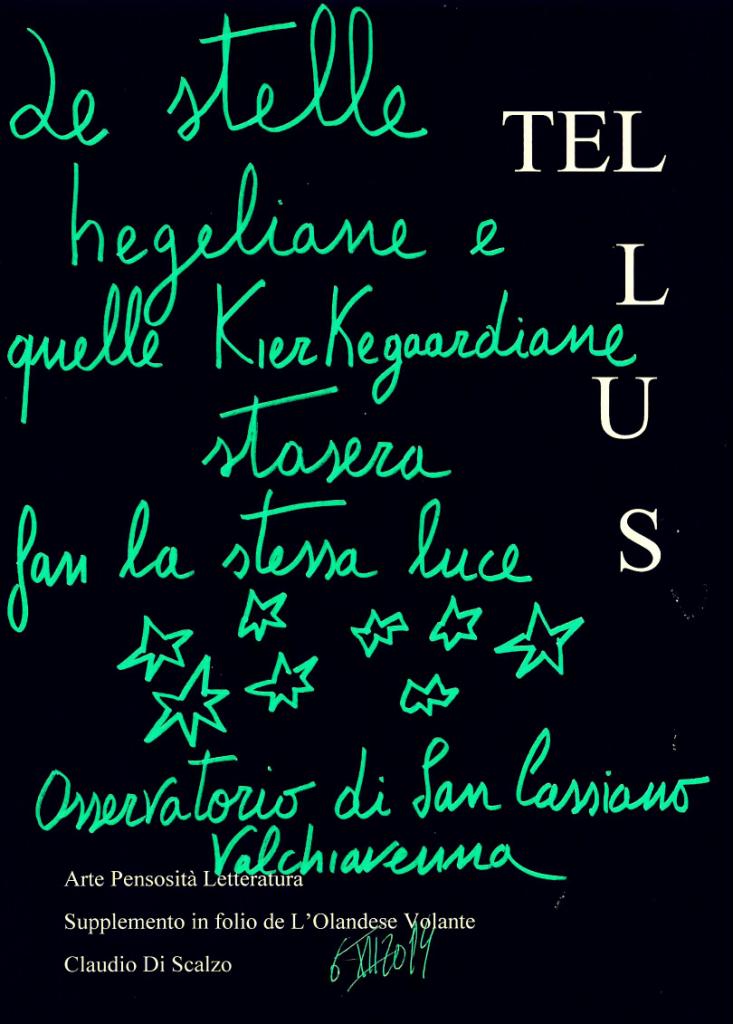 Le stelle
TEL
hegeliane e
L
quelle KierKegaardiane
U
stasera
fan la stessa luce
S
Osservatorio di San Cassiano
Valchiavenna
Arte Pensosità Letteratura
Supplemento in folio de L'Olandese Volante
Claudio Di Scalzo
6 XII 2014